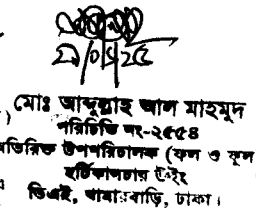 ২১/০৫/২৫
মোঃ আব্দুল্লাহ আল মাহমুদ
পরিচিতি নং-২৫৫৪
অতিরিক্ত উপপরিচালক (ফল ও ফুল
হর্টিকালচার উইং
ডিএই, খামারবাড়ি, ঢাকা।